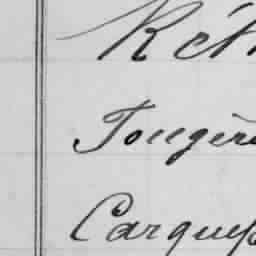 Rét
Fougèr
Carques